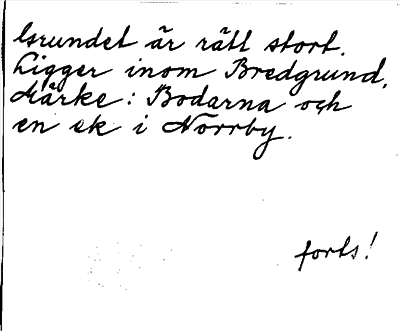 Grundet är rätt stort.
Ligger inom Bredgrund.
Märke: Bodarna och
en ek i Norrby.
forts!